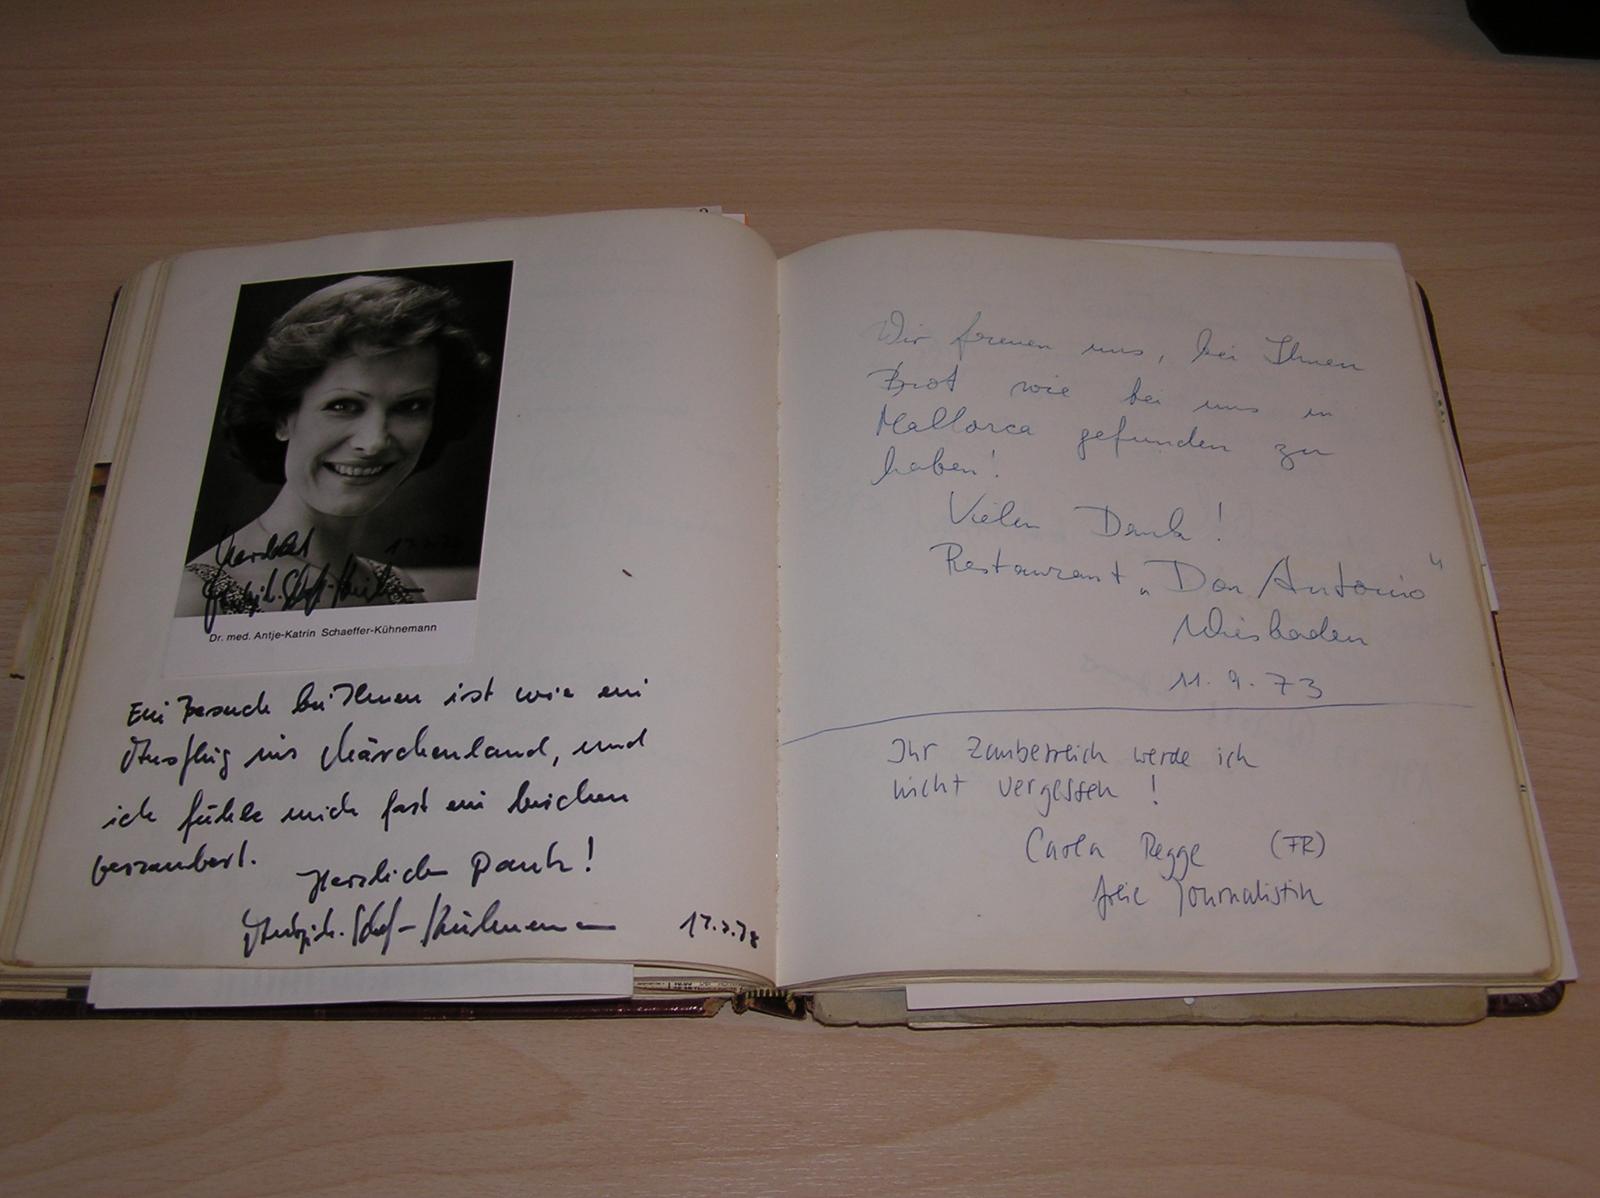 Herzlichst
Dr. med. Antje-Katrin Schaeffer-Kühnemann
Ein Besuch bei Ihnen ist wie ein
Ausflug ins Märchenland, und
ich fühle mich fast ein bischen
verzaubert.
Herzlichen Dank!
Antje-K. Schaef-Kühnemann 17.2.78
Wir freuen uns, bei Ihnen
Brot wie bei uns in
Mallorca gefunden zu
haben!
Vielen Dank!
Restaurant „Don Antonio“
Wiesbaden
11.9.73
Ihr Zauberreich werde ich
nicht vergessen!
Carla Regge (FR)
freie Journalistin